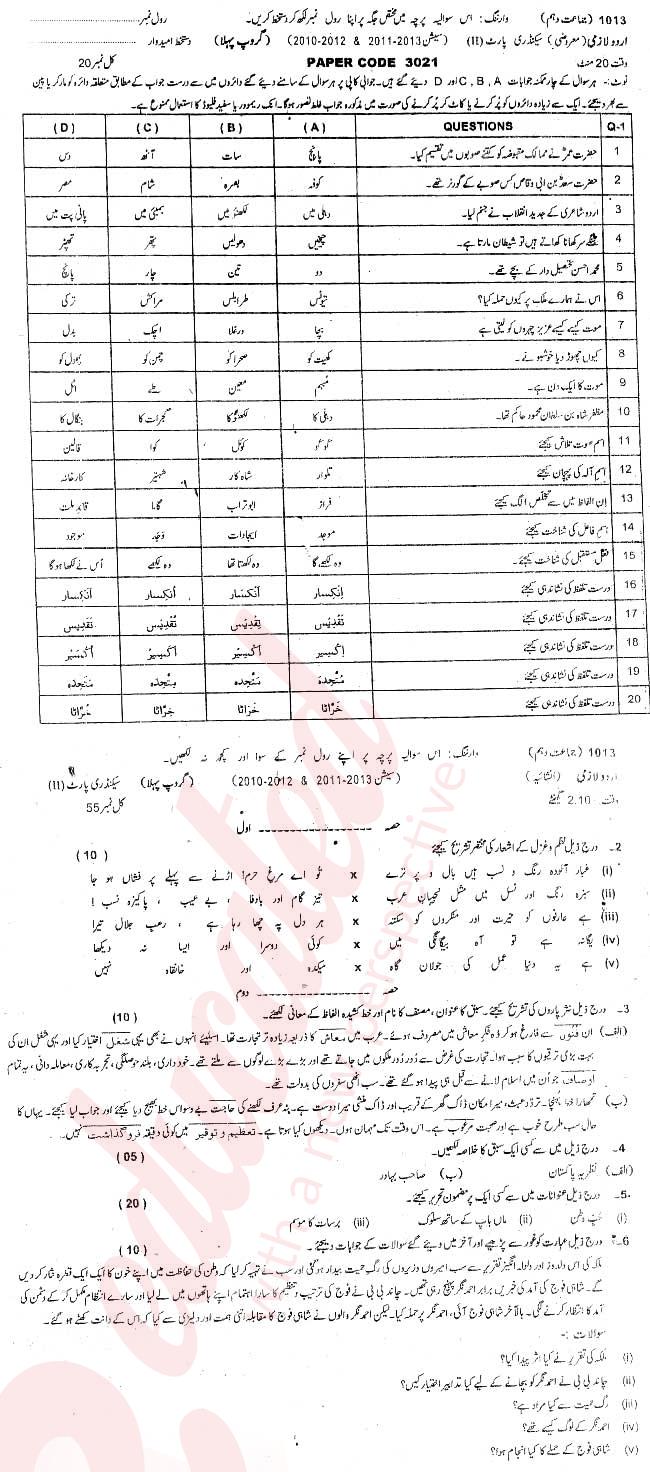 1013 (جماعت دہم) وارننگ: اس سوالیہ پرچہ میں مختص جگہ پر اپنا رول نمبر لکھ کر دستخط کریں۔ رول نمبر
اردو لازمی (معروضی) سیکنڈری پارٹ (II) (سیشن 2013-2011 & 2012-2010) (گروپ پہلا) دستخط امیدوار
وقت 20 منٹ PAPER CODE 3021 کل نمبر 20
نوٹ:- ہر سوال کے چار ممکنہ جوابات A، B، C اور D دیئے گئے ہیں۔ جوابی کاپی پر ہر سوال کے سامنے دیئے گئے دائروں میں سے درست جواب کے مطابق متعلقہ دائرہ کو مارکر یا پین
سے بھر دیجئے۔ ایک سے زیادہ دائروں کو پُر کرنے یا کاٹ کر پُر کرنے کی صورت میں مذکورہ جواب غلط تصور ہو گا۔ انک ریموور یا سفید فلیوڈ کا استعمال ممنوع ہے۔
(D) (C) (B) (A) QUESTIONS Q-1
1 حضرت عمرؓ نے ممالک مقبوضہ کو کتنے صوبوں میں تقسیم کیا۔ پانچ سات آٹھ دس
2 حضرت سعدؓ بن ابی وقاص کس صوبے کے گورنر تھے۔ کوفہ بصرہ شام مصر
3 اردو شاعری کے جدید انقلاب نے جنم لیا۔ دہلی میں لکھنؤ میں بمبئی میں پانی پت میں
4 سر کھانا کھاتے ہیں تو شیطان مارتا ہے۔ چپتیں دھولیں پتھر تھپڑ
5 محمد احسن تحصیل دار کے بچے تھے۔ دو تین چار پانچ
6 اس نے ہمارے ملک پر کیوں حملہ کیا؟ تیونس طرابلس مراکش ترکی
7 موت کیسے کیسے عزیز چہروں کو لیتی ہے بچا ورغلا اچک بدل
8 کیوں چھوڑ دیا خوشبو نے۔ کھیت کو صحرا کو چمن کو پھول کو
9 موت کا ایک دن ہے۔ مبہم معین طے اٹل
10 مظفر شاہ بن سلطان محمود حاکم تھا۔ دہلی کا لکھنؤ کا گجرات کا بنگال کا
11 اسم صوت تلاش کیجئے ککو کوئل کوا قالین
12 اسم آلہ کی پہچان کیجئے تلوار شاہ کار شہتیر کارخانہ
13 اِن الفاظ میں سے تخلص الگ کیجئے فراز ابو تراب گاما قائد ملت
14 اسم فاعل کی شناخت کیجئے موجد ایجادات وجد موجود
15 فعل مستقبل کی شناخت کیجئے۔ وہ لکھے گا وہ لکھتا تھا وہ لکھے اُس نے لکھا ہو گا
16 درست تلفظ کی نشاندہی کیجئے اِنکِسار اَنکَسار اَنکِسار اُنکِسار
17 درست تلفظ کی نشاندہی کیجئے تقدیس تقدیس تقدیس تقدیس
18 درست تلفظ کی نشاندہی کیجئے اِکسیر اکسیر اکسیر اُکسیر
19 درست تلفظ کی نشاندہی کیجئے متحدہ متحدہ متحدہ متحدہ
20 درست تلفظ کی نشاندہی کیجئے خراٹا خراٹا خراٹا خراٹا
1013 (جماعت دہم) وارننگ: اس سوالیہ پرچہ پر اپنے رول نمبر کے سوا اور کچھ نہ لکھیں۔
اردو لازمی (انشائیہ) (سیشن 2013-2011 & 2012-2010) (گروپ پہلا) سیکنڈری پارٹ (II)
وقت 2.10 گھنٹے کل نمبر 55
حصہ اول
2۔ درج ذیل نظم و غزل کے اشعار کی مختصر تشریح کیجئے (10)
(i) غبار آلودہ رنگ و نسب ہیں بال و پر تیرے x تُو اے مرغِ حرم! اڑنے سے پہلے پر فشاں ہو جا
(ii) سبزہ رنگ اور نسل میں مثل نجیبانِ عرب x تیز گام اور باوفا، بے عیب، پاکیزہ نسب!
(iii) ہے عارفوں کو حیرت اور منکروں کو سکتہ x ہر دل پہ چھا رہا ہے، رعبِ جلال تیرا
(iv) یگانہ ہے تو آہ بیگانگی میں x کوئی دوسرا اور ایسا نہ دیکھا
(v) ہے یہ دنیا عمل کی جولاں گاہ x میکدہ اور خانقاہ نہیں
حصہ دوم
3۔ درج ذیل نثر پاروں کی تشریح کیجئے۔ سبق کا عنوان، مصنف کا نام اور خط کشیدہ الفاظ کے معانی لکھئے۔ (10)
(الف) ان فنون سے فارغ ہو کر وہ فکرِ معاش میں مصروف ہوئے۔ عرب میں معاش کا ذریعہ زیادہ تر تجارت تھا۔ اسلیئے انہوں نے بھی یہی شغل اختیار کیا اور یہی شغل ان کی
بہت بڑی ترقیوں کا سبب ہوا۔ تجارت کی غرض سے دُور دُور ملکوں میں جاتے تھے اور بڑے بڑے لوگوں سے ملتے تھے۔ خود داری، بلند حوصلگی، تجربہ کاری، معاملہ دانی، یہ تمام
اوصاف جو اُن میں اسلام لانے سے قبل ہی پیدا ہو گئے تھے۔ سب انھی سفروں کی بدولت تھے۔
(ب) تمھارا خط پہنچا۔ تردّد عبث، میرا مکان ڈاک گھر کے قریب اور ڈاک منشی میرا دوست ہے۔ نہ عرف لکھنے کی حاجت بے وسواس خط بھیج دیا کیجئے اور جواب لیا کیجئے۔ یہاں کا
حال سب طرح خوب ہے اور صحبت مرغوب ہے۔ اس وقت تک مہمان ہوں۔ دیکھوں کیا ہوتا ہے۔ تعظیم و توقیر میں کوئی دقیقہ فروگذاشت نہیں۔
4۔ درج ذیل میں سے کسی ایک سبق کا خلاصہ لکھیں۔ (05)
(الف) نظریہ پاکستان (ب) صاحب بہادر
5۔ درج ذیل عنوانات میں سے کسی ایک پر مضمون تحریر کیجئے۔ (20)
(i) حُب وطن (ii) ماں باپ کے ساتھ سلوک (iii) برسات کا موسم
6۔ درج ذیل عبارت کو غور سے پڑھیے اور آخر میں دیئے گئے سوالات کے جوابات دیجئے۔ (10)
ملکہ کی اس ولدوز اور ولولہ انگیز تقریر سے سب امیروں وزیروں کی رگِ حمیت بیدار ہو گئی اور سب نے تہیہ کر لیا کہ وطن کی حفاظت میں اپنے خون کا ایک ایک قطرہ نثار کر دیں
گے۔ شاہی فوج کی آمد کی خبریں برابر احمد نگر پہنچ رہی تھیں۔ چاند بی بی نے فوج کی ترتیب و تنظیم کا سارا اہتمام اپنے ہاتھوں میں لے لیا اور سارے انتظام مکمل کر کے دشمن کی
آمد کا انتظار کرنے لگی۔ بالآخر شاہی فوج آئی، احمد نگر پر حملہ کیا۔ لیکن احمد نگر والوں نے شاہی فوج کا مقابلہ اتنی ہمت اور دلیری سے کیا کہ اس کے دانت کھٹے ہو گئے۔
سوالات :-
(i) ملکہ کی تقریر نے کیا اثر پیدا کیا؟
(ii) چاند بی بی نے احمد نگر کو بچانے کے لیے کیا تدابیر اختیار کیں؟
(iii) رگِ حمیت سے کیا مراد ہے؟
(iv) احمد نگر کے لوگ کیسے تھے؟
(v) شاہی فوج کے حملے کا کیا انجام ہوا؟